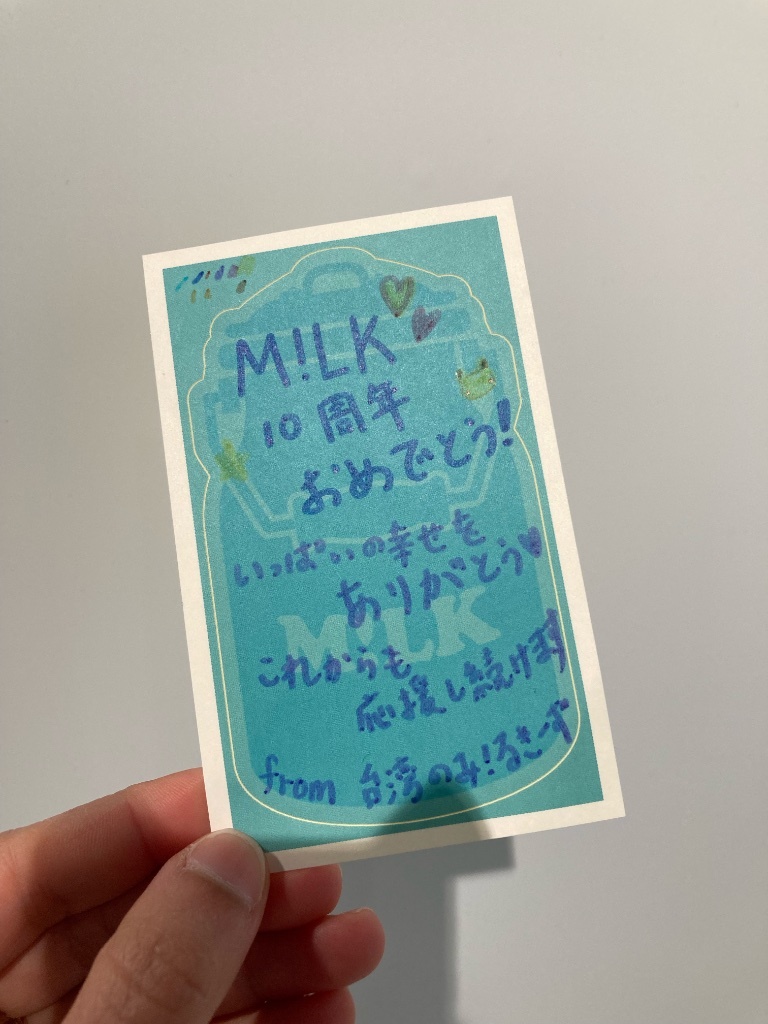 M!LK
10周年
おめでとう!
いっぱいの幸せを
ありがとう♥
M!LK
これからも
応援し続けます
from 台湾のみ!るきーず